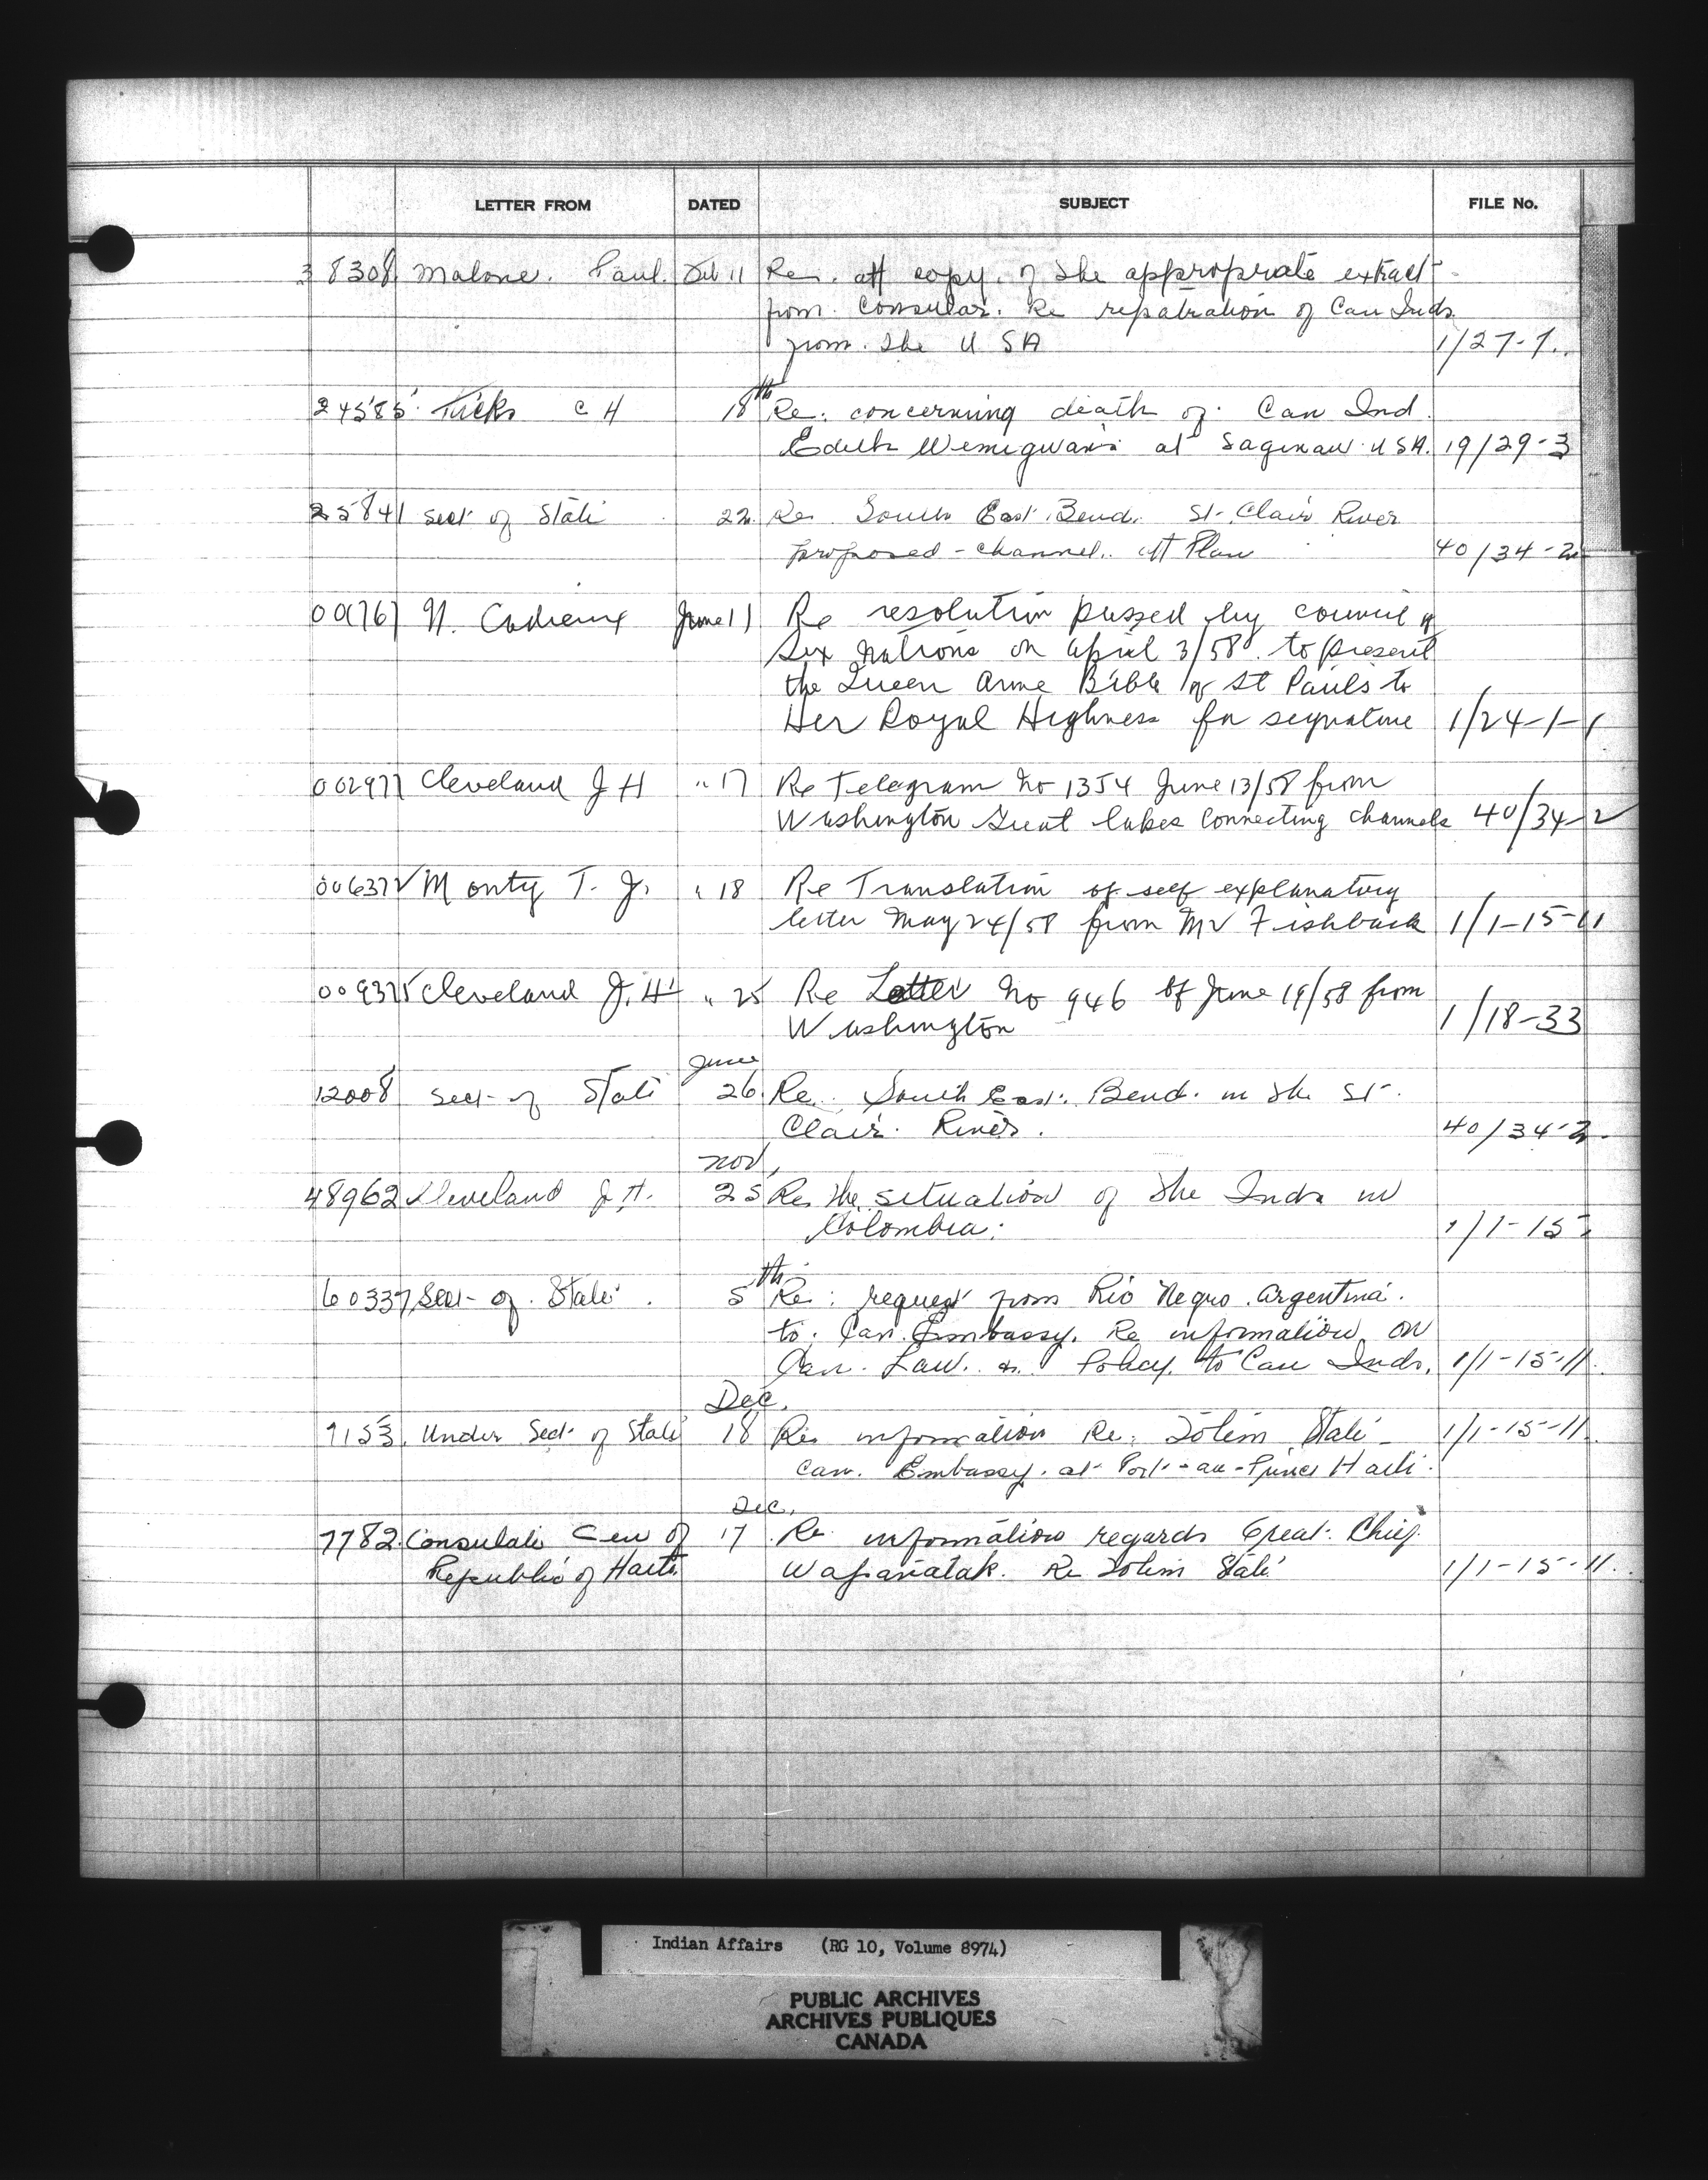 LETTER FROM DATED SUBJECT FILE No.
38308 Malone. Paul. Feb 11 Re. att copy. of the appropriate extract
from Consular. Re repatriation of Can Inds
from. the U SA 1/27-7.
24585 C H 18th Re: concerning death of. Can Ind.
Edith Wemigwans at Saginaw U SA. 19/29-3
25841 Sect of State 22. Re South East Bend. St. Clair River
proposed - channel. att Plan 40/34-2
001767 N. Cadieux June 11 Re resolution passed by council of
Six Nations on April 3/58 to present
the Queen Anne Bible of St Pauls to
Her Royal Highness for signature 1/24-1-1
002977 Cleveland J H " 17 Re Telegram No 1354 June 13/58 from
Washington Great Lakes Connecting Channels 40/34-2
006372 Monty T. J. " 18 Re Translation of self explanatory
letter May 24/58 from Mr Fishback 1/1-15-11
009375 Cleveland J. H. " 25 Re Letter No 946 of June 19/58 from
Washington 1/18-33
June
12008 Sect of State 26. Re. South East. Bend. in the St.
Clair. River. 40/34-2.
Nov,
48962 Cleveland J. H. 25 Re the situation of the Inds in
Colombia. 1/1-15
60337 Sect of. State. 5th Re: request from Rio Negro. Argentina.
to. Can. Embassy. Re information on
Can. Law. & Policy. to Can Inds. 1/1-15-11.
Dec.
7153. Under Sect of State 18 Re information Re: Totem State
Can. Embassy. at Port-au-Prince Haiti. 1/1-15-11.
Dec.
7782. Consulate Gen of 17 Re information regards Great. Chief.
Republic of Haiti Re Totem State 1/1-15-11.
Indian Affairs (RG 10, Volume 8974)
PUBLIC ARCHIVES
ARCHIVES PUBLIQUES
CANADA